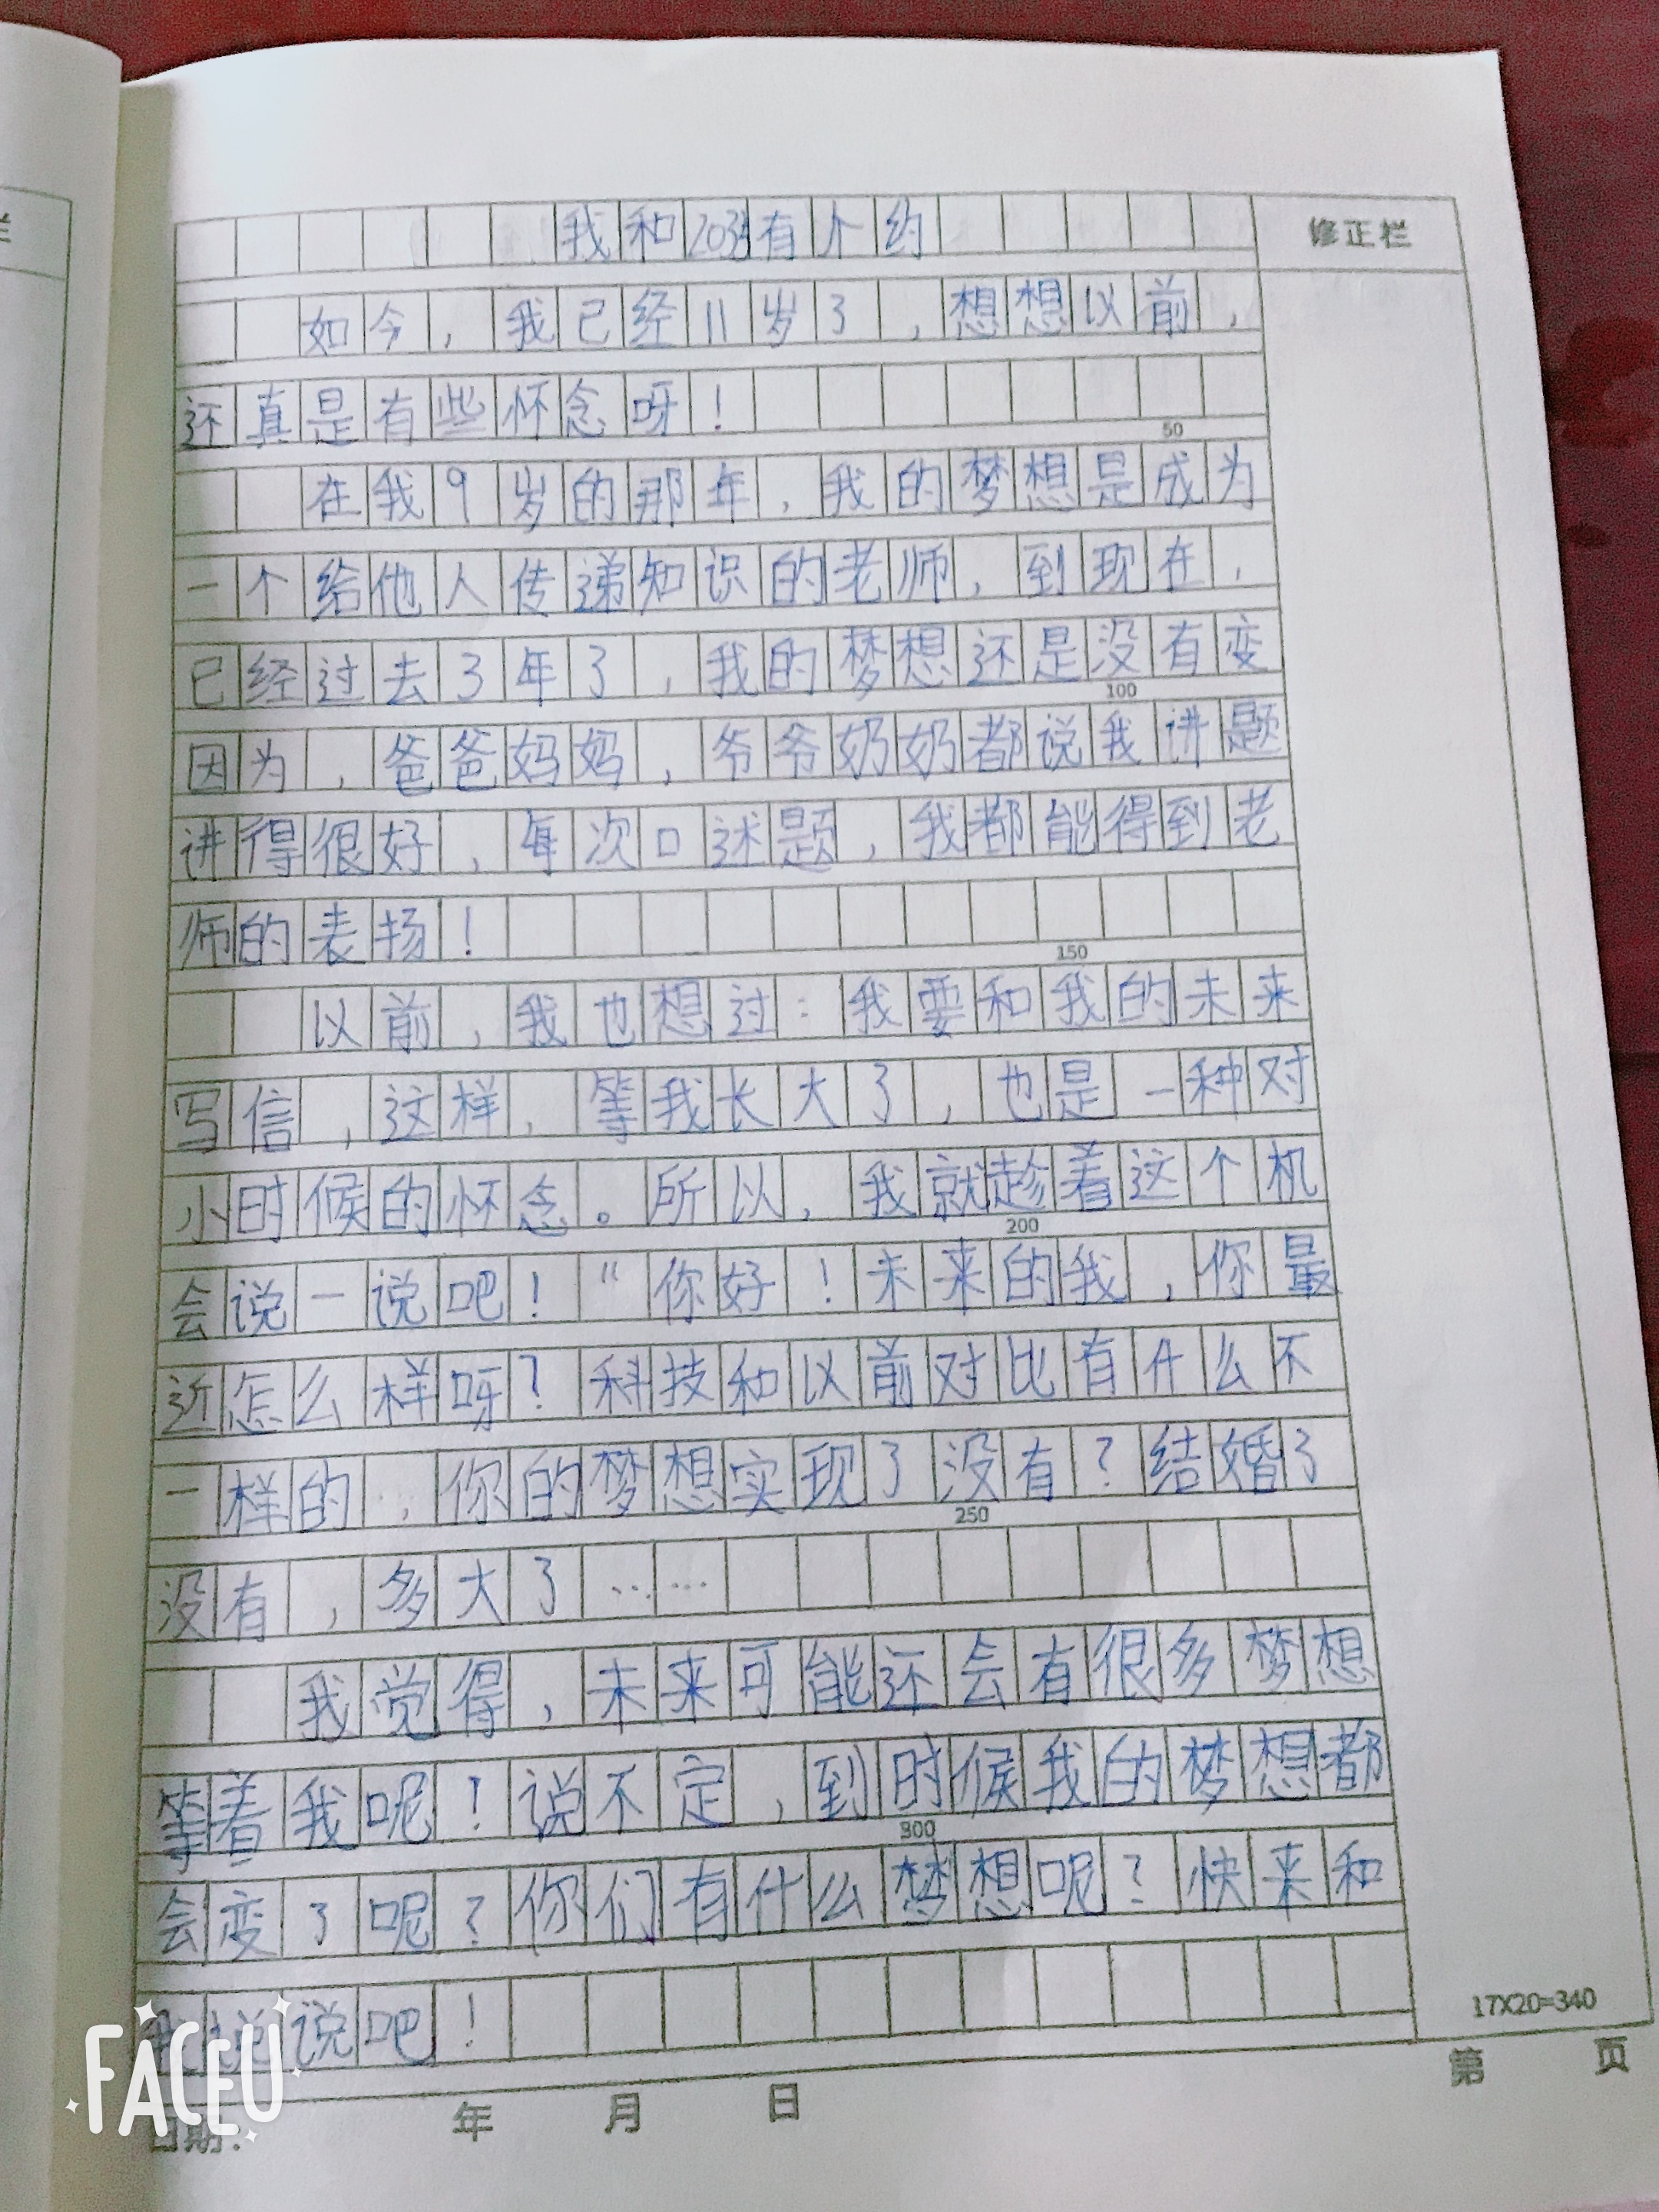 我和2035有个约
修正栏
如今，我已经11岁了，想想以前，
还真是有些怀念呀！
50
在我9岁的那年，我的梦想是成为
一个给他人传递知识的老师，到现在，
已经过去3年了，我的梦想还是没有变
100
因为，爸爸妈妈，爷爷奶奶都说我讲题
讲得很好，每次口述题，我都能得到老
师的表扬！
150
以前，我也想过：我要和我的未来
写信，这样，等我长大了，也是一种对
小时候的怀念。所以，我就趁着这个机
200
会说一说吧！“你好！未来的我，你最
近怎么样呀？科技和以前对比有什么不
一样的，你的梦想实现了没有？结婚了
250
没有，多大了……
我觉得，未来可能还会有很多梦想
等着我呢！说不定，到时候我的梦想都
300
会变了呢？你们有什么梦想呢？快来和
我说说吧！
17X20=340
日期： 年 月 日
第 页
FACEU